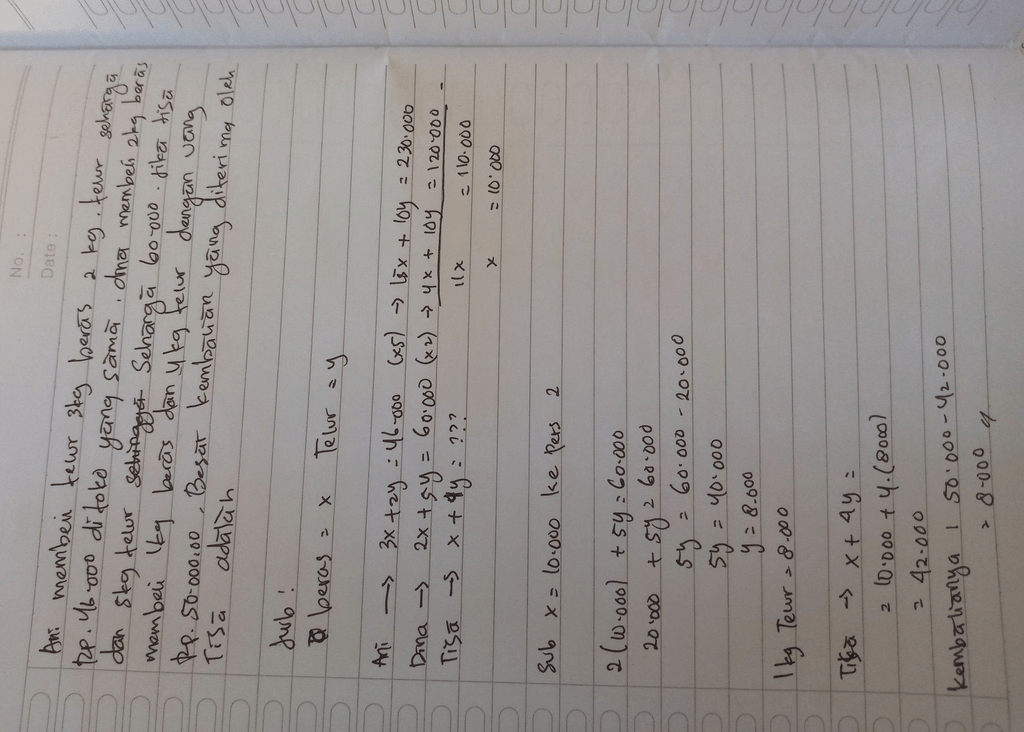 No. :
Date :
Ani membeli telur 3kg beras 2 kg. telur seharga
Rp. 46.000 di toko yang sama. dna membeli 2kg beras
dan 5kg telur sehingga seharga 60.000. Jika tisa
membeli 1kg beras dan 4kg telur dengan uang
Rp. 50.000,00, Besar kembalian yang diterima oleh
Tisa adalah
Jwb :
beras = x Telur = y
Ani → 3x + 2y = 46.000 (x5) → 15x + 10y = 230.000
Dna → 2x + 5y = 60.000 (x2) → 4x + 10y = 120.000 -
Tisa → x + 4y = ??? 11x = 110.000
x = 10.000
Sub x = 10.000 ke Pers 2
2 (10.000) + 5y = 60.000
20.000 + 5y = 60.000
5y = 60.000 - 20.000
5y = 40.000
y = 8.000
1 kg Telur = 8.000
Tisa → x + 4y =
= 10.000 + 4.(8000)
= 42.000
kembaliannya | 50.000 - 42.000
= 8.000